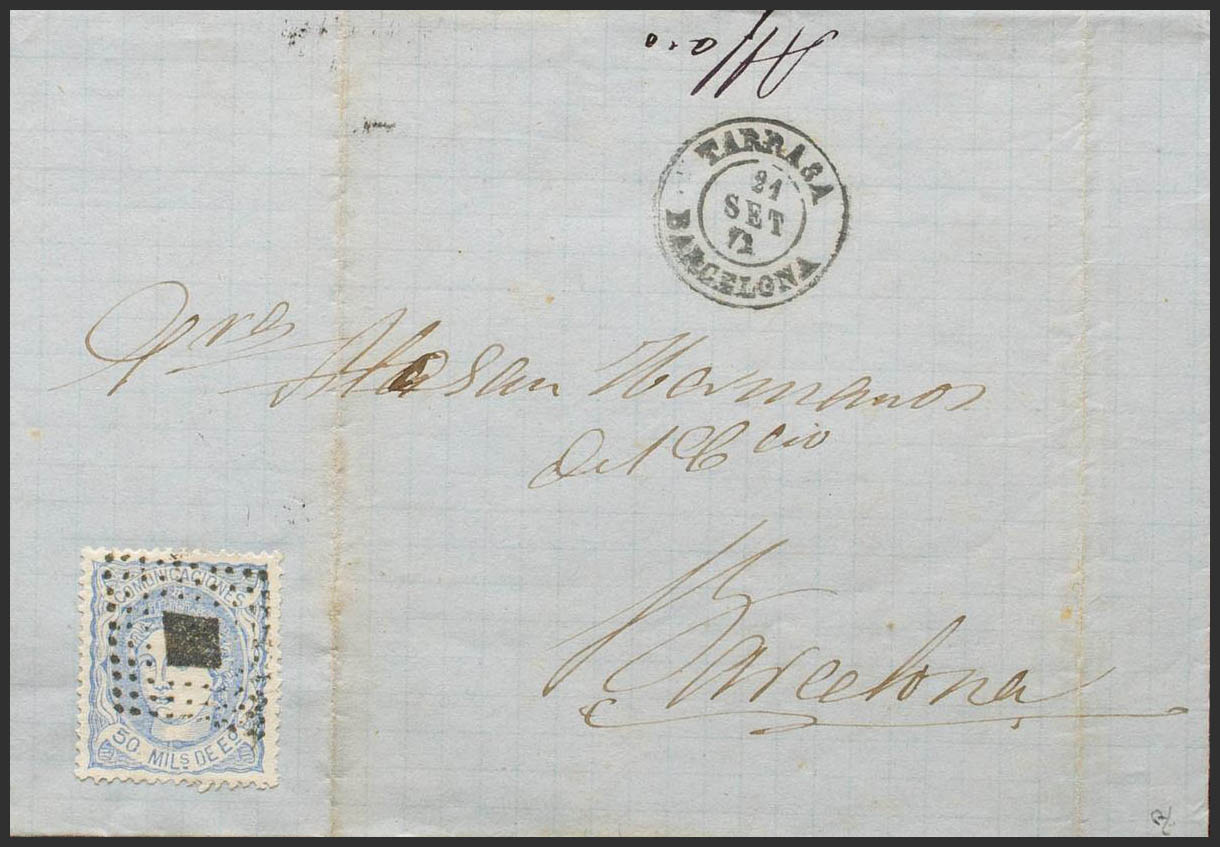 TARRASA
21
SET
71
BARCELONA
Sres Masan Hermanos
del Ccio
Barcelona
COMUNICACIONES
50 MILS DE ES